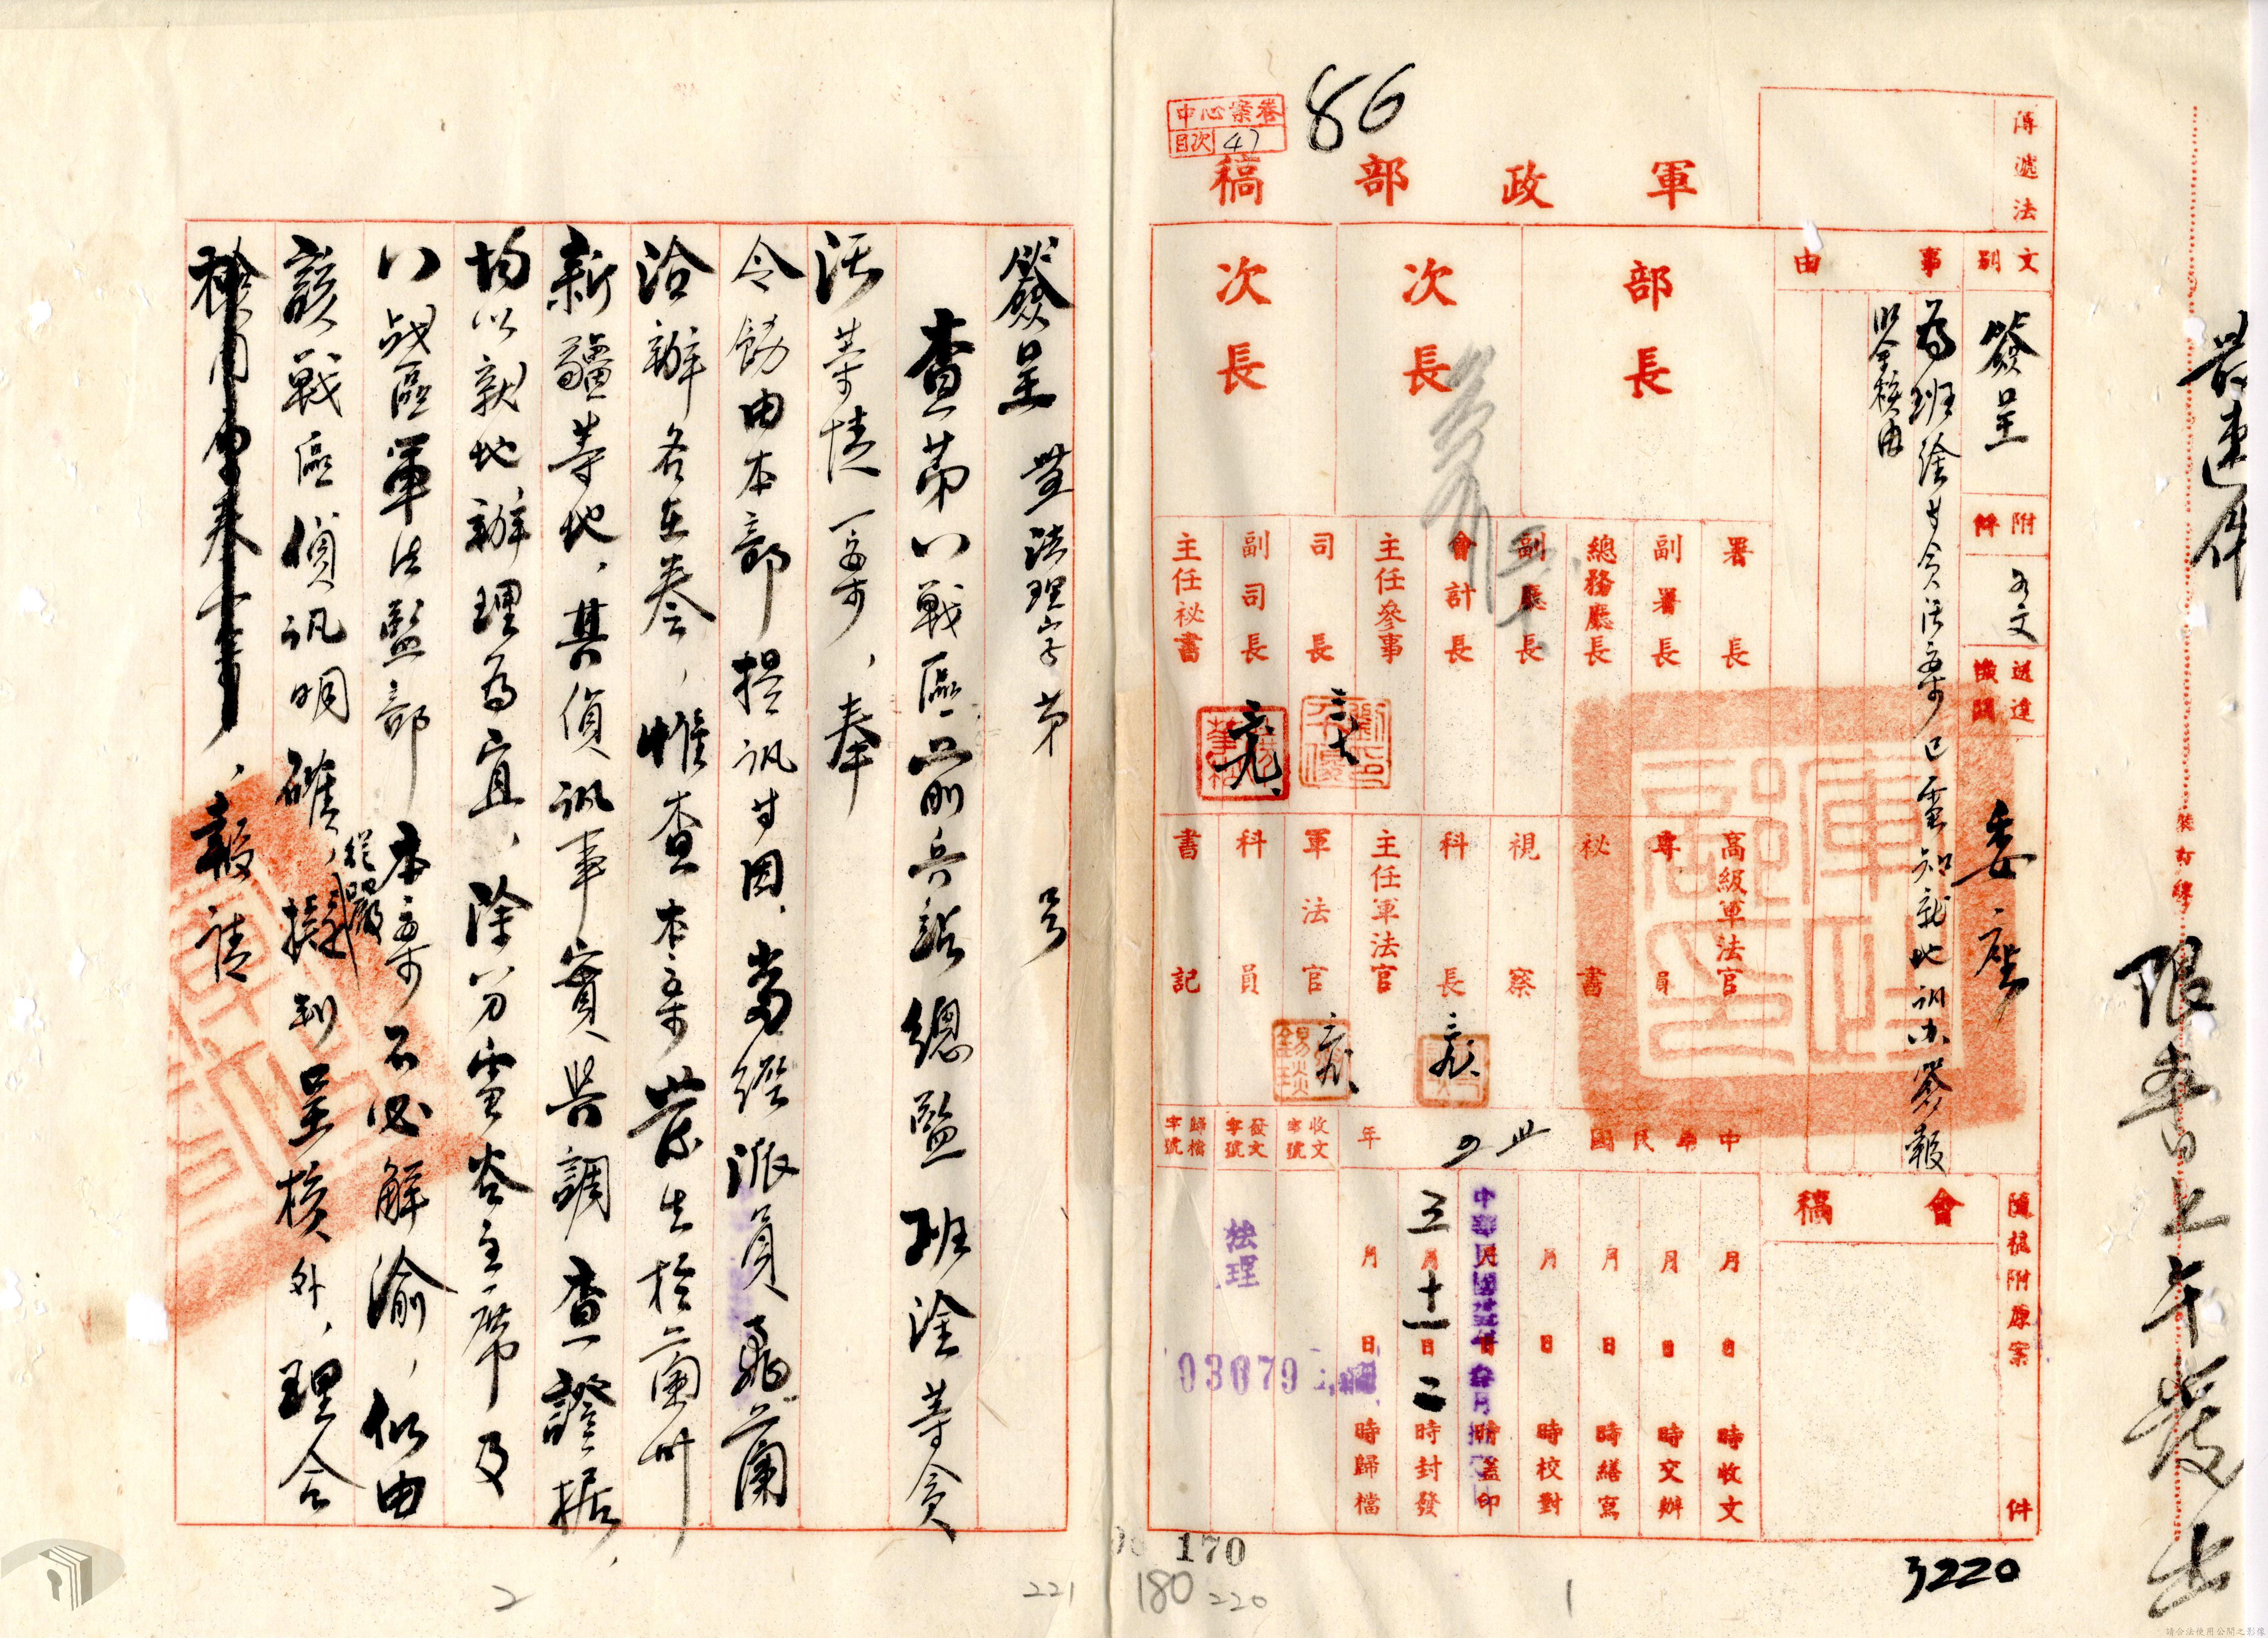 最速件
限本日上午發出
裝訂線
傳遞法
文別
簽呈
附件
如文
送達機關
委座
隨稿附原案
件
事由
為班淦等貪污案已電知就地訊办簽報
鑒核由
會稿
86
中心案卷
目次 47
軍政部稿
部長
次長
次長
署長
副署長
總務廳長
副廳長
會計長
主任參事
司長
副司長
主任秘書
高級軍法官
專員
秘書
視察
科長
主任軍法官
軍法官
科員
書記
中華民國卅四年
月日時收文
月日時交辦
月日時繕寫
月日時校對
月日時蓋印
三月十一日二時封發
月日時歸檔
收文字號
發文字號
歸檔字號
法理
03079
3220
170
180
220
1
簽呈 法理字第 號
查第八戰區前兵站總監班淦等貪
污等情一案，奉
令飭由本部提訊等因，當經派員飛蘭
洽辦各在卷，惟查本案發生於蘭州
新疆等地，其偵訊事實與調查證据，
均以就地辦理為宜，除分電谷主席及
八战區軍法監部本案不必解渝，似由
該戰區偵訊明確，從嚴擬判呈核外，理合
報請
221
2
請合法使用公開之影像